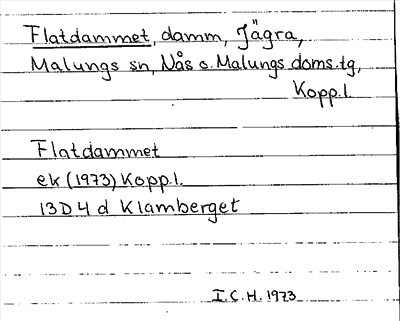 Flatdammet, damm, Jägra,
Malungs sn, Nås o. Malungs doms.tg,
Kopp.l.
Flatdammet
ek (1973) Kopp.l.
13D 4 d Klamberget
I.C.H. 1973